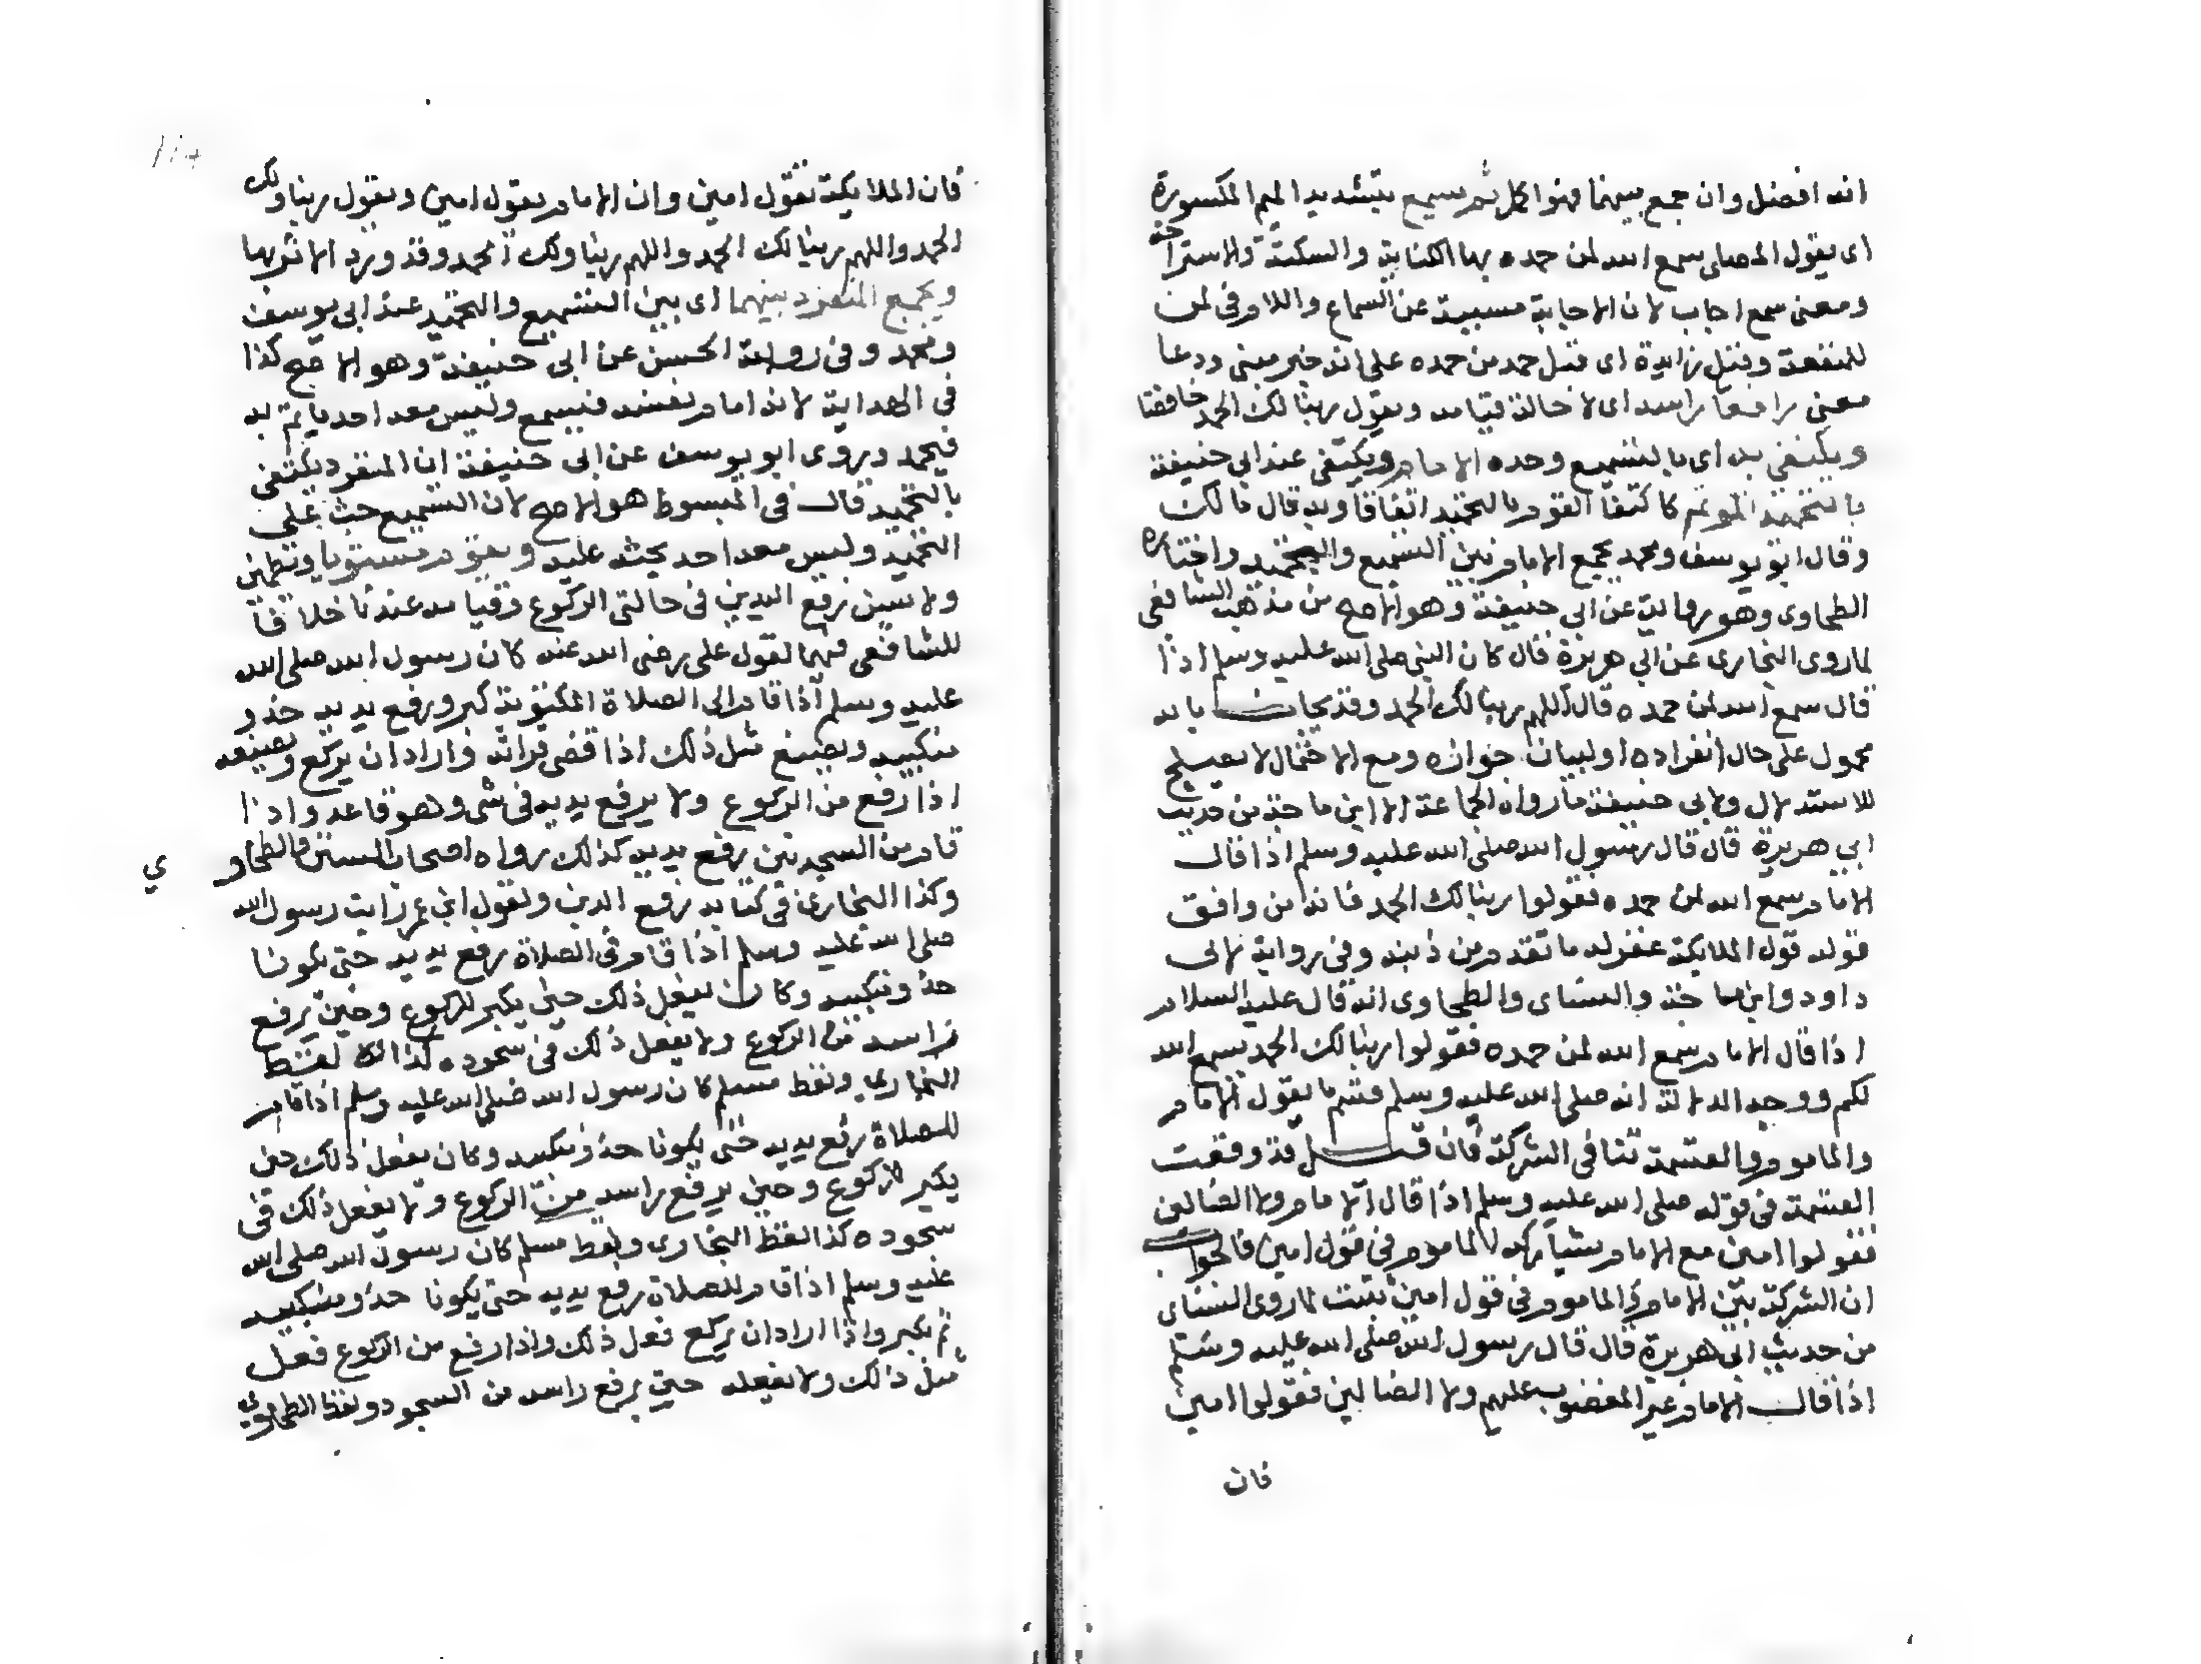 انه افضل وان جمع بينهما فهو اكمل ثم سميع بتشديد الميم المكسورة
اى يقول المصلى سمع الله لمن حمده بها الكناية والسكتة والاستراحة
ومعنى سمع اجاب لان الاجابة مسببة عن السماع واللام فى لمن
للمنفعة وقيل زايدة اى قبل حمد من حمده على انه خبر مبنى ودعا
معنى رافعا راسه اى لا حالة قيامه ويقول ربنا لك الحمد خافضا
ويكتفى به اى بالتسميع وحده الامام ويكتفى عند ابى حنيفة
بالتحميد الموتم كاكتفا القوم بالتحميد اتفاقا وبه قال مالك
وقال ابو يوسف ومحمد يجمع الامام بين التسميع والتحميد واختاره
الطحاوى وهو رواية عن ابى حنيفة وهو الاصح من مذهب الشافعى
لما روى البخارى عن ابى هريرة قال كان النبى صلى الله عليه وسلم اذا
قال سمع الله لمن حمده قال اللهم ربنا لك الحمد وقد يجاب بانه
محمول على حال انفراده او لبيان جوازه ومع الاحتمال لا يصلح
للاستدلال ولابى حنيفة ما رواه الجماعة الا ابن ماجة من حديث
ابى هريرة قال قال رسول الله صلى الله عليه وسلم اذا قال
الامام سمع الله لمن حمده فقولوا ربنا لك الحمد فانه من وافق
قوله قول الملايكة غفر له ما تقدم من ذنبه وفى رواية لابى
داود وابن ماجة والنساى والطحاوى انه قال عليه السلام
اذا قال الامام سمع الله لمن حمده فقولوا ربنا لك الحمد يسمع الله
لكم ووجه الدلالة انه صلى الله عليه وسلم قسم ما يقول الامام
والماموم والقسمة تنافى الشركة فان قيل قد وقعت
القسمة فى قوله صلى الله عليه وسلم اذا قال الامام ولا الضالين
فقولوا امين مع الامام يشاركه الماموم فى قول امين فالجواب
ان الشركة بين الامام والماموم فى قول امين ثبتت لما روى النساى
من حديث ابى هريرة قال قال رسول الله صلى الله عليه وسلم
اذا قال الامام غير المغضوب عليهم ولا الضالين فقولوا امين
فان
فان الملايكة تقول امين وان الامام يقول امين ويقول ربنا ولك
الحمد واللهم ربنا لك الحمد واللهم ربنا ولك الحمد وقد ورد الاثر بها
ويجمع المنفرد بينهما اى بين التسميع والتحميد عند ابى يوسف
ومحمد وفى رواية الحسن عن ابى حنيفة وهو الاصح كذا
فى الهداية لانه امام نفسه فيسمع وليس معه احد ياتم به
فيحمد وروى ابو يوسف عن ابى حنيفة ان المنفرد يكتفى
بالتحميد قال فى المبسوط هو الاصح لان التسميع حث على
التحميد وليس معه احد يحثه عليه ويقوم مستويا وتطمئن
ولا يسن رفع اليدين فى حالتى الركوع وقيامه عندنا خلافا
للشافعى فيهما لقول على رضى الله عنه كان رسول الله صلى الله
عليه وسلم اذا قام الى الصلاة المكتوبة كبر ورفع يديه حذو
منكبيه ويصنع مثل ذلك اذا قضى قراته واراد ان يركع ويصنعه
اذا رفع من الركوع ولا يرفع يديه فى شى وهو قاعد واذا
قام من السجدتين رفع يديه كذلك رواه اصحاب السنن والطحاو
ي
وكذا البخارى فى كتابه رفع اليدين ولقول ابن عمر رايت رسول الله
صلى الله عليه وسلم اذا قام فى الصلاة رفع يديه حتى يكونا
حذو منكبيه وكان يفعل ذلك حين يكبر للركوع وحين يرفع
راسه من الركوع ولا يفعل ذلك فى سجوده كذا لفظ
البخارى ولفظ مسلم كان رسول الله صلى الله عليه وسلم اذا قام
للصلاة رفع يديه حتى يكونا حذو منكبيه وكان يفعل ذلك حين
يكبر للركوع وحين يرفع راسه من الركوع ولا يفعل ذلك فى
سجوده كذا لفظ البخارى ولفظ مسلم كان رسول الله صلى الله
عليه وسلم اذا قام للصلاة رفع يديه حتى يكونا حذو منكبيه
ثم يكبر واذا اراد ان يركع فعل ذلك واذا رفع من الركوع فعل
مثل ذلك ولا يفعله حين يرفع راسه من السجود ولفظ الطحاوى